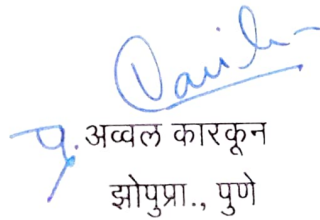 प्र. अव्वल कारकून
झोपुप्रा., पुणे